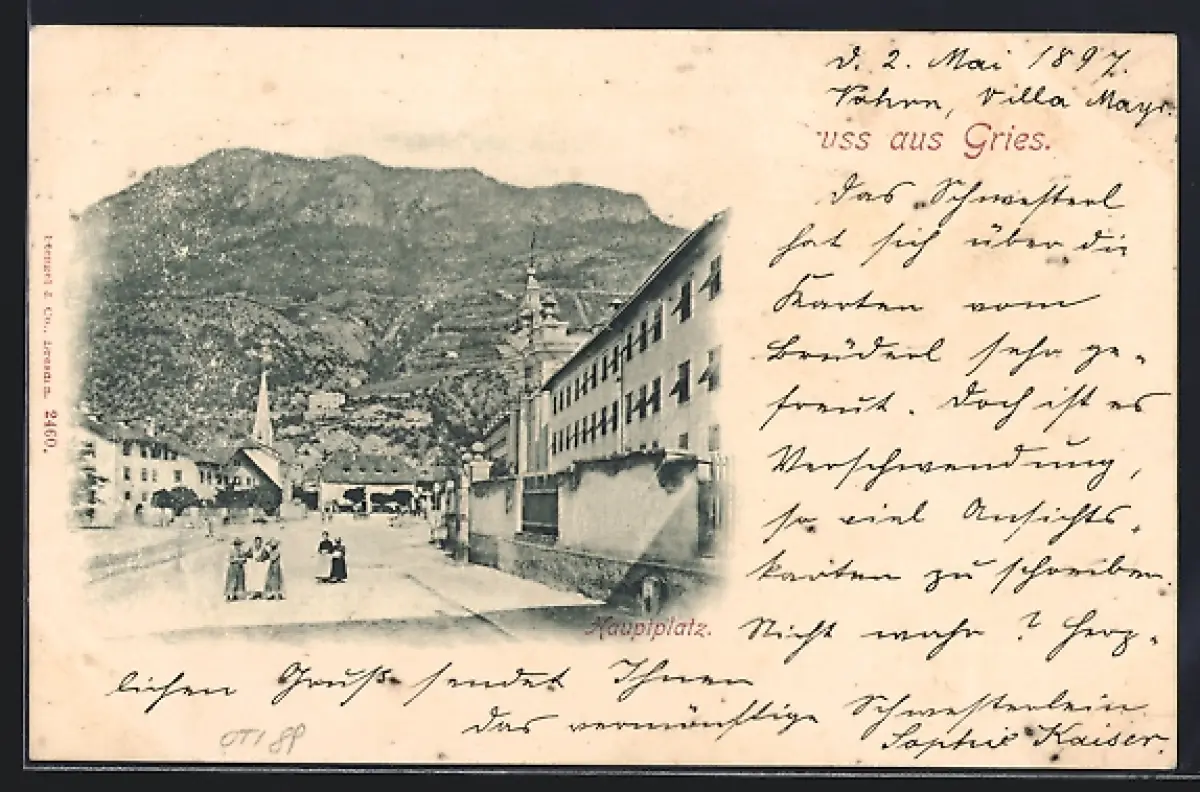 d. 2. Mai 1897.
Vahrn, Villa Mayr.
uss aus Gries.
Das Schwesterl
hat sich über die
Karten vom
Brüderl sehr ge-
freut. Doch ist es
Verschwendung,
so viel Ansichts-
karten zu schreiben.
Nicht wahr? Herz-
lichen Gruß sendet Ihnen
das vernünftige Schwesterlein
Sophie Kaiser.
Hauptplatz.
Stengel & Co., Dresden. 2460.